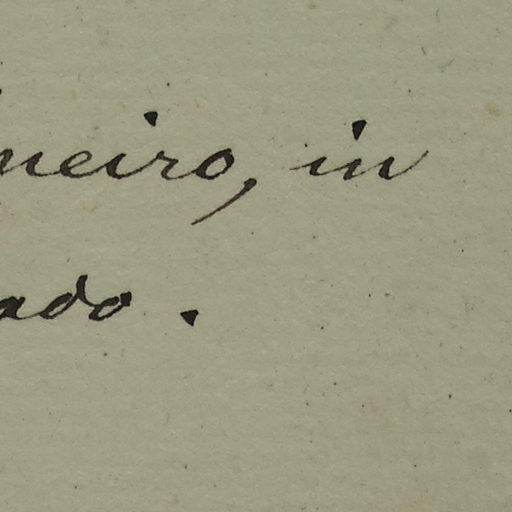 neiro, in
ado.